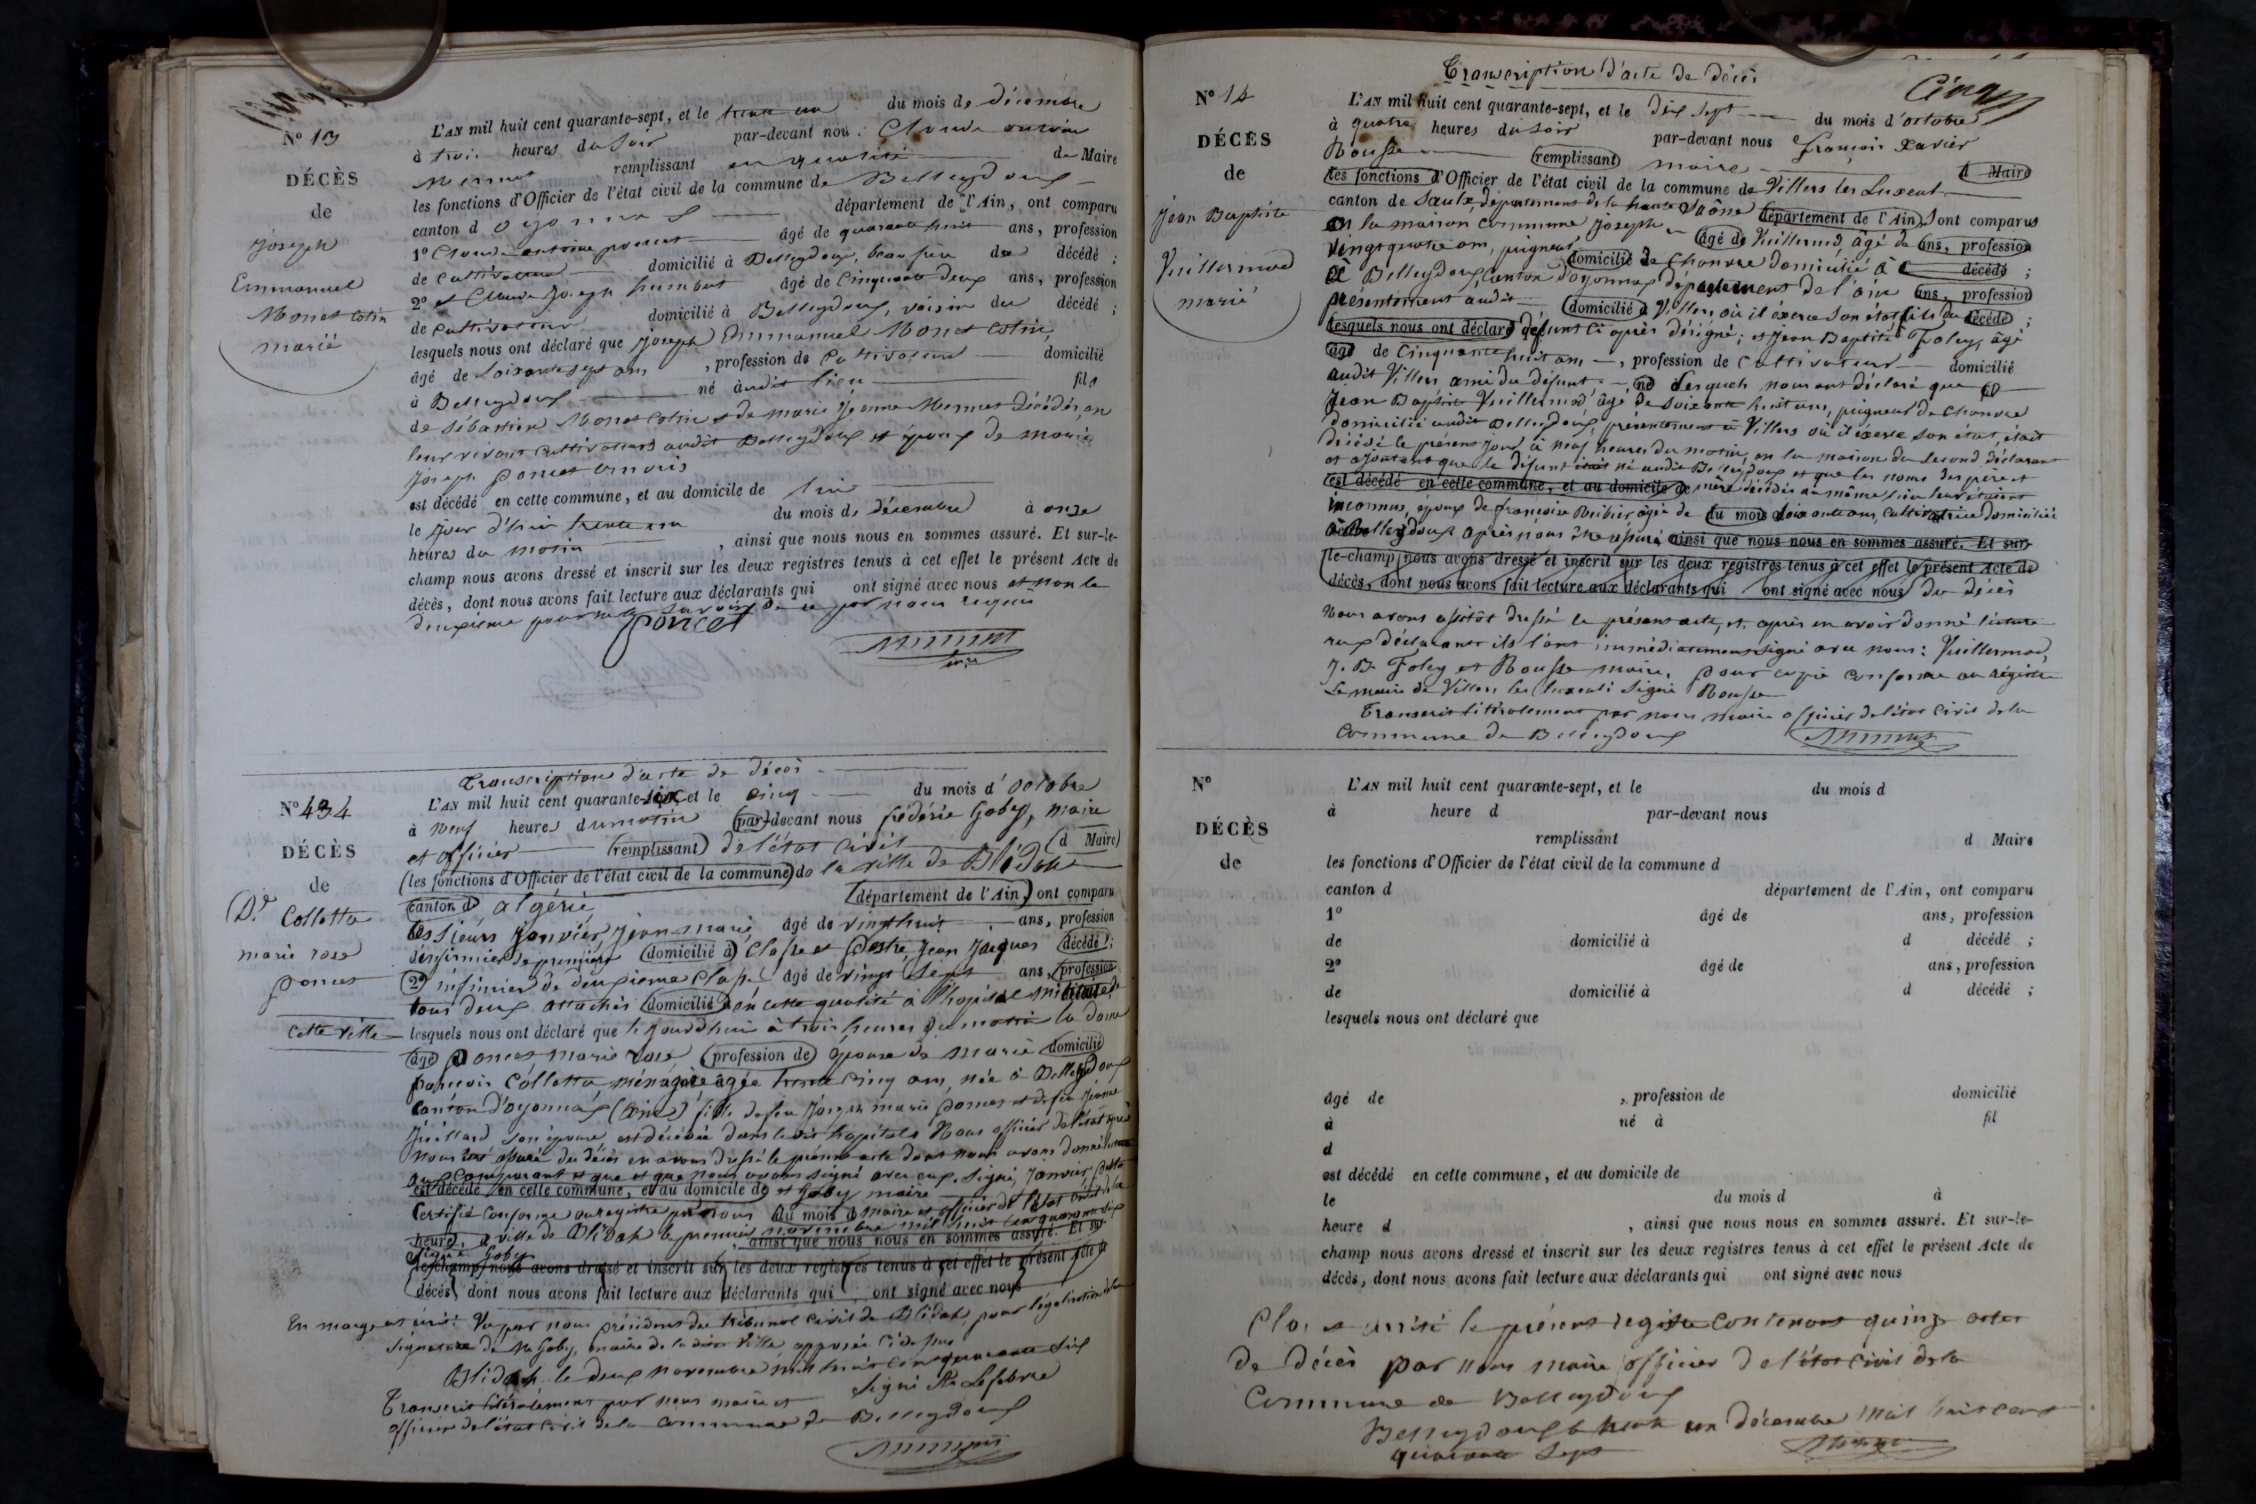 N° 13
DÉCÈS
de
Joseph
Emmanuel
Monet Cotin
marié
L'AN mil huit cent quarante-sept, et le trente un du mois de décembre
à trois heures du Soir par-devant nous Claude antoine
Mermet remplissant en qualité de Maire
les fonctions d'Officier de l'état civil de la commune de Belleydoux
canton d'oyonnax département de l'Ain, ont comparu
1° Claude antoine poncet âgé de quarante huit ans, profession
de Cultivateur domicilié à Belleydoux, beau frère du décédé ;
2° et Claude Joseph humbert âgé de Cinquante deux ans, profession
de Cultivateur domicilié à Belleydoux, voisin du décédé ;
lesquels nous ont déclaré que Joseph Emmanuel Monet Cotin,
âgé de Soixante sept ans, profession de Cultivateur domicilié
à Belleydoux né audit lieu fils
de Sébastien Monet Cotin et de marie Jeanne Mermet décédés, en
leur vivant Cultivateurs audit Belleydoux et époux de marie
Joseph poncet
est décédé en cette commune, et au domicile de
le jour d'hier trente un du mois de décembre à onze
heures du matin, ainsi que nous nous en sommes assuré. Et sur-le-
champ nous avons dressé et inscrit sur les deux registres tenus à cet effet le présent Acte de
décès, dont nous avons fait lecture aux déclarants qui ont signé avec nous et non le
deuxième pour ne le savoir de ce par nous requis
poncet
Mermet
N° 434
DÉCÈS
de
De
Colletta
marie rose
poncet
cette ville
Transcription d'acte de décès
L'AN mil huit cent quarante-six et le cinq du mois d'Octobre
à Neuf heures du matin par-devant nous frédéric Goby, maire
et officier remplissant de l'état civil d Maire
les fonctions d'Officier de l'état civil de la commune de la ville de Blidah
canton d algérie département de l'Ain, ont comparu
les Sieurs Janvier, Jean marie âgé de vingt huit ans, profession
d'infirmier de première domicilié à Classe et Jean Jacques décédé ;
2° infirmier de deuxième classe, âgé de vingt Sept ans, profession
tous deux attachés domicilié en cette qualité à l'hopital militaire
lesquels nous ont déclaré que ce jourd'hui à trois heures du matin la dame
âgé poncet marie rose profession de épouse de marie domicilié
françois Colletta ménagère âgée trente cinq ans, née à Belleydoux
Canton d'Oyonnax (Ain) fille de feu Joseph marie poncet et de feue Jeanne
Juillard son épouse est décédée dans le dit hopital. Nous officier de l'état après
nous être assuré du décès en avons dressé le présent acte dont nous avons donné lecture
aux Comparants et que nous avons signé avec eux. Signé, Janvier
est décédé en cette commune, et au domicile de et Goby maire
Certifié Conforme au registre par nous du mois d maire et officier de l'état civil de la
heure d ville de Blidah le premier novembre mil huit cent quarante six
, ainsi que nous nous en sommes assuré. Et sur-
Signé Goby
le-champ nous avons dressé et inscrit sur les deux registres tenus à cet effet le présent Acte de
décès, dont nous avons fait lecture aux déclarants qui ont signé avec nous
En marge est écrit : Vu par nous président du tribunal Civil de Blidah pour légalisation de la
Signature de Mr Goby, maire de la dite ville apposée ci dessus
Blidah le deux novembre mil huit cent quarante Six
Signé Lefebvre
Transcrit littéralement par nous maire et
officier de l'état Civil de la Commune de Belleydoux
Mermet
Transcription d'acte de décès
N° 14
DÉCÈS
de
Jean Baptiste
Vuillermod
marié
L'AN mil huit cent quarante-sept, et le dix sept du mois d'octobre
à quatre heures du soir par-devant nous françois Xavier
Rousse remplissant maire d Maire
les fonctions d'Officier de l'état civil de la commune de Villers les Luxeul
canton de Saulx, département de la haute Saône département de l'Ain, sont comparus
en la maison Commune Joseph âgé de Vuillermod, âgé de ans, profession
Vingt quatre ans, peigneur domicilié de Chanvre domicilié à décédé ;
à Belleydoux, canton d'oyonnax département de l'ain ans, profession
présentement audit domicilié à Villers où il éxerce Son état, fils du décédé ;
lesquels nous ont déclaré défunt Ci après désigné ; et Jean Baptiste Foley, âgé
âgé de Cinquante huit ans, profession de Cultivateur domicilié
audit Villers ami du défunt né lesquels nous ont déclaré que
Jean Baptiste Vuillermod âgé de soixante huit ans, peigneur de Chanvre
domicilié audit Belleydoux, présentement à Villers où il éxerce son état, était
décédé le présent jour à neuf heures du matin, en la maison du Second déclarant
et ajoutant que le défunt était né audit Belleydoux et que les noms des père et
est décédé en cette commune, et au domicile de mère décédés au même lieu leur étaient
inconnus, époux de françoise âgée de du mois soixante ans, Cultivatrice domiciliée
à Belleydoux après nous être assuré ainsi que nous nous en sommes assuré. Et sur-
le-champ nous avons dressé et inscrit sur les deux registres tenus à cet effet le présent Acte de
décès, dont nous avons fait lecture aux déclarants qui ont signé avec nous du décès
Nous avons aussitôt dressé le présent acte, et, après en avoir donné lecture
aux déclarants ils l'ont immédiatement signé avec nous : Vuillermod,
J. B. Foley et Rousse maire. pour copie conforme au régistre
Le maire de Villers les Luxeul Signé Rousse
Transcrit littéralement par nous maire officier de l'état Civil de la
Commune de Belleydoux
Mermet
N°
DÉCÈS
de
L'AN mil huit cent quarante-sept, et le du mois d
à heure d par-devant nous
remplissant d Maire
les fonctions d'Officier de l'état civil de la commune d
canton d département de l'Ain, ont comparu
1° âgé de ans, profession
de domicilié à d décédé ;
2° âgé de ans, profession
de domicilié à d décédé ;
lesquels nous ont déclaré que
âgé de , profession de domicilié
à né à fil
d
est décédé en cette commune, et au domicile de
le du mois d à
heure d , ainsi que nous nous en sommes assuré. Et sur-le-
champ nous avons dressé et inscrit sur les deux registres tenus à cet effet le présent Acte de
décès, dont nous avons fait lecture aux déclarants qui ont signé avec nous
Clos et arrêté le présent registre contenant quinze actes
de décès par nous maire officier de l'état civil de la
Commune de Belleydoux
Belleydoux le trente un décembre mil huit cent
quarante Sept
Mermet